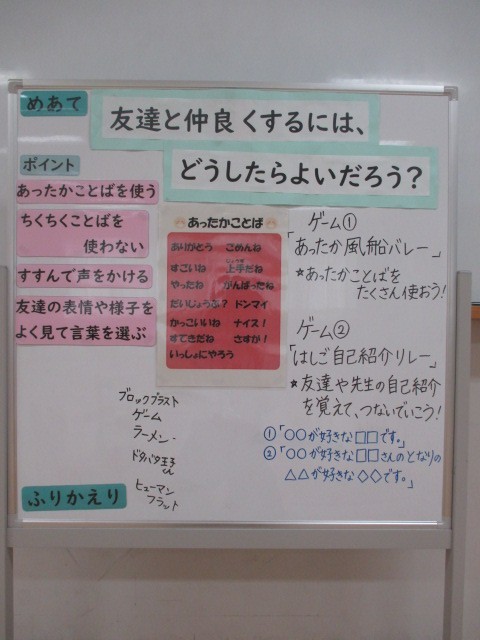 めあて
友達と仲良くするには、
どうしたらよいだろう？
ポイント
あったかことばを使う
ちくちくことばを
使わない
すすんで声をかける
友達の表情や様子を
よく見て言葉を選ぶ
あったかことば
ありがとう ごめんね
すごいね 上手だね
やったね がんばったね
だいじょうぶ？ ドンマイ
かっこいいね ナイス！
すてきだね さすが！
いっしょにやろう
ゲーム①
「あったか風船バレー」
★あったかことばを
たくさん使おう！
ゲーム②
「はしご自己紹介リレー」
★友達や先生の自己紹介
を覚えて、つないでいこう！
①「○○が好きな□□です。」
②「○○が好きな□□さんのとなりの
△△が好きな◇◇です。」
ブロックブラスト
ゲーム
ラーメン
ドタバタ王子
くん
ヒューマン
フラット
ふりかえり